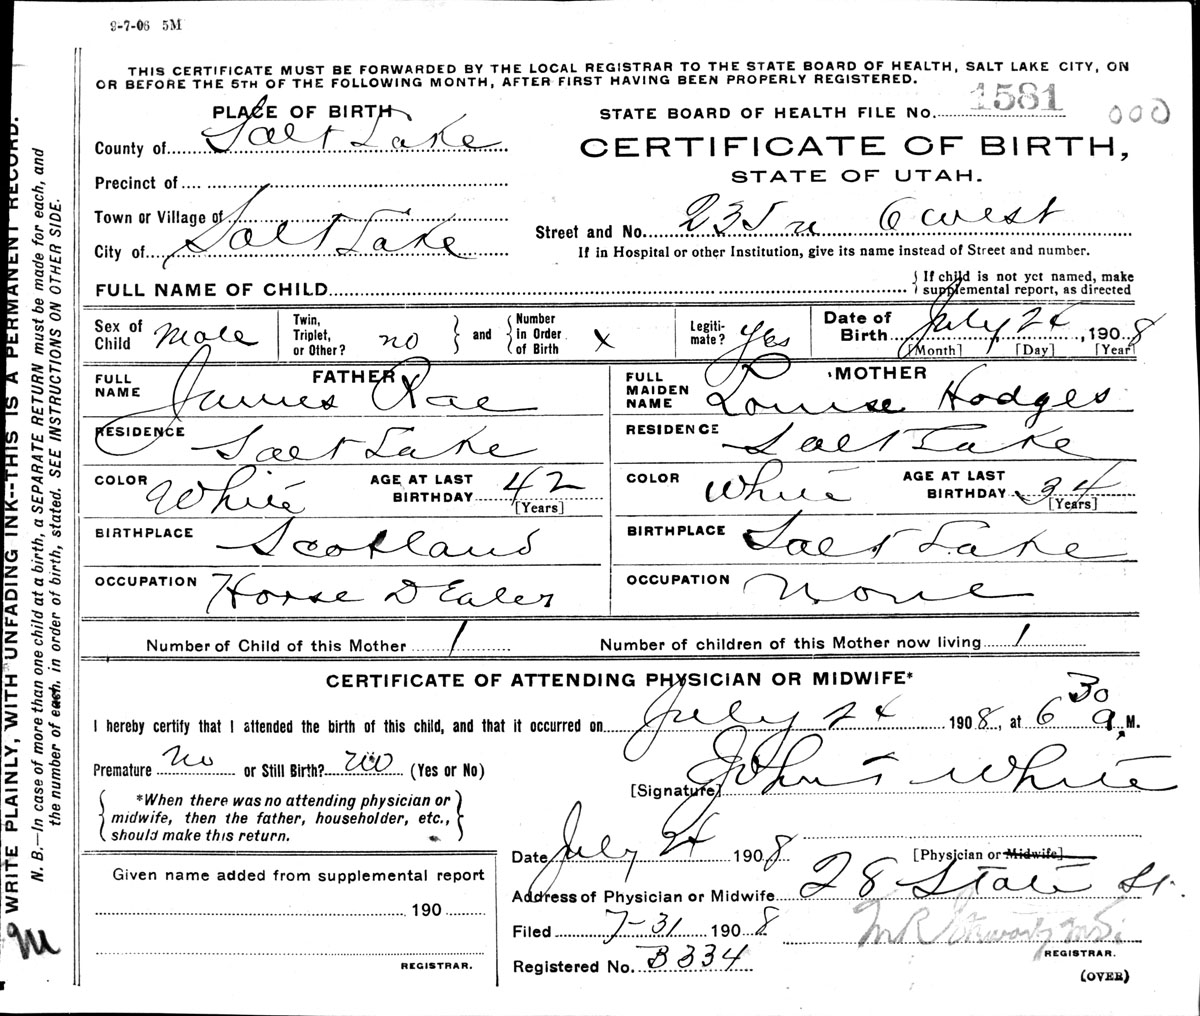 9-7-06 5M
THIS CERTIFICATE MUST BE FORWARDED BY THE LOCAL REGISTRAR TO THE STATE BOARD OF HEALTH, SALT LAKE CITY, ON
OR BEFORE THE 5TH OF THE FOLLOWING MONTH, AFTER FIRST HAVING BEEN PROPERLY REGISTERED.
PLACE OF BIRTH
STATE BOARD OF HEALTH FILE NO. 1581 000
County of Salt Lake
CERTIFICATE OF BIRTH,
STATE OF UTAH.
Precinct of
Town or Village of
City of Salt Lake
Street and No. 235 n 6 west
If in Hospital or other Institution, give its name instead of Street and number.
FULL NAME OF CHILD
{ If child is not yet named, make
supplemental report, as directed
Sex of Child Male
Twin, Triplet, or Other? no } and { Number in Order of Birth x
Legitimate? Yes
Date of Birth July 24, 1908
[Month] [Day] [Year]
FATHER
FULL NAME James Rae
MOTHER
FULL MAIDEN NAME Louise Hodges
RESIDENCE Salt Lake
RESIDENCE Salt Lake
COLOR White AGE AT LAST BIRTHDAY 42 [Years]
COLOR White AGE AT LAST BIRTHDAY 34 [Years]
BIRTHPLACE Scotland
BIRTHPLACE Salt Lake
OCCUPATION Horse DEaler
OCCUPATION None
Number of Child of this Mother 1
Number of children of this Mother now living 1
CERTIFICATE OF ATTENDING PHYSICIAN OR MIDWIFE*
I hereby certify that I attended the birth of this child, and that it occurred on July 24 1908, at 6 30 a, M.
Premature no or Still Birth? no (Yes or No)
[Signature] John T White
{ *When there was no attending physician or
midwife, then the father, householder, etc.,
should make this return. }
Date July 24 1908
[Physician or Midwife]
Given name added from supplemental report
190
REGISTRAR.
Address of Physician or Midwife 28 State St.
Filed 7-31 1908
REGISTRAR.
Registered No. B334
(OVER)
WRITE PLAINLY, WITH UNFADING INK--THIS IS A PERMANENT RECORD.
N. B.—In case of more than one child at a birth, a SEPARATE RETURN must be made for each, and
the number of each, in order of birth, stated. SEE INSTRUCTIONS ON OTHER SIDE.